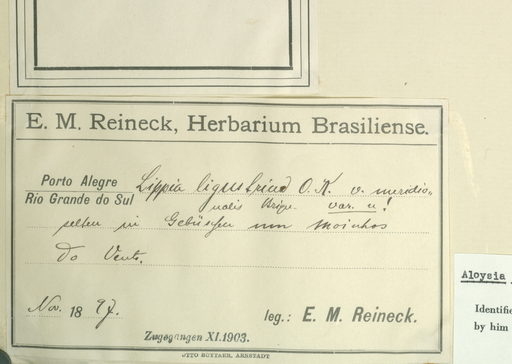 E. M. Reineck, Herbarium Brasiliense.
Porto Alegre Lippia ligustrina O. K. v. meridio-
Rio Grande do Sul nalis Briqu. var. n!
selten in Gebüschen um Moinhos
do Vento.
Nov. 18 97. leg.: E. M. Reineck.
Zugegangen XI. 1903.
OTTO BÖTTNER, ARNSTADT
Aloysia
Identifie
by him